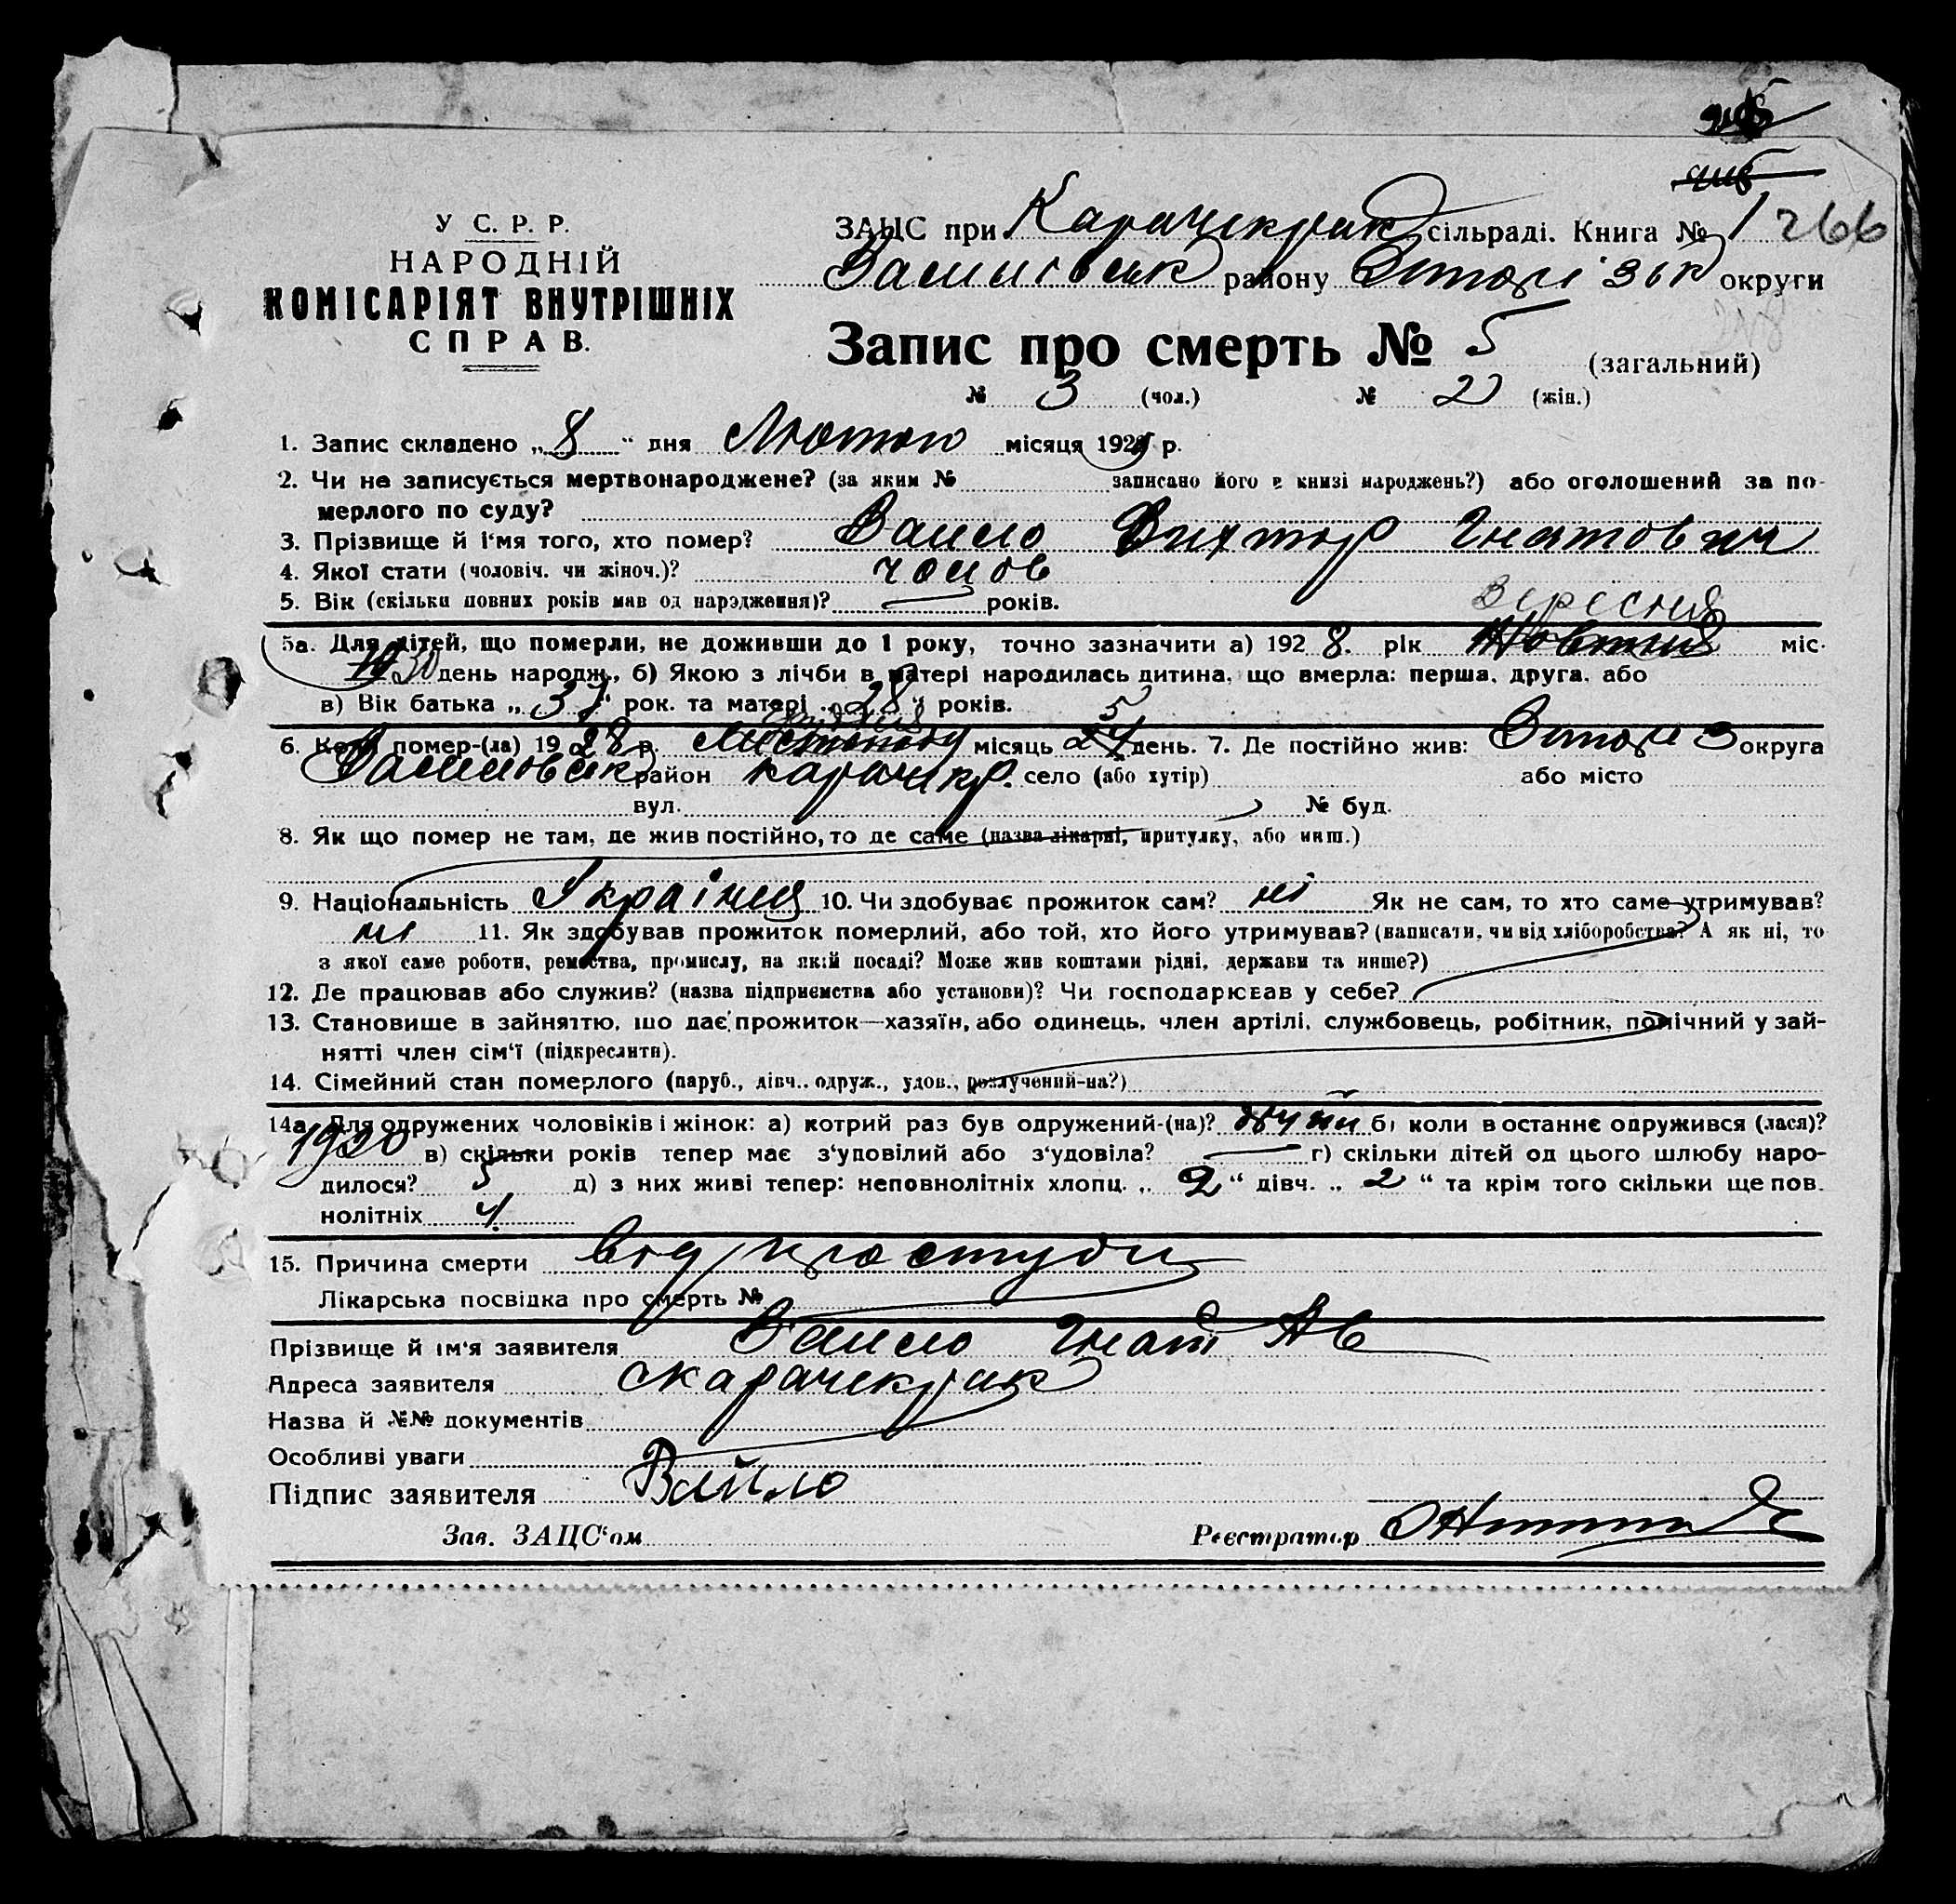 У С. Р. Р.
НАРОДНІЙ
КОМІСАРІЯТ ВНУТРІШНІХ
СПРАВ.
ЗАЦС при Карачекрак сільраді. Книга № 1 266
Василівськ району Запорізьк округи
Запис про смерть № 5 (загальний)
№ 3 (чол.) № 2 (жін.)
1. Запис складено „ 8 “ дня Лютого місяця 1929 р.
2. Чи не записується мертвонароджене? (за яким № записано його в книзі народжень?) або оголошений за по-
мерлого по суду?
3. Прізвище й і'мя того, хто помер? Вайло Вихтор Гнатович
4. Якої стати (чоловіч. чи жіноч.)? чолов
5. Вік (скільки повних років мав од народження)? — років.
Вересня
5а. Для дітей, що померли, не доживши до 1 року, точно зазначити а) 192 8. рік Жовтня міс.
30 день народж., б) Якою з лічби в матері народилась дитина, що вмерла: перша, друга, або 5
в) Вік батька „ 37 “ рок. та матері „ 28 “ років.
6. Коли помер-(ла) 19 28 р. місяць день. 7. Де постійно жив: округа
Василівськ район Карачекр. село (або хутір) або місто
вул. № буд.
8. Як що помер не там, де жив постійно, то де саме (назва лікарні, притулку, або инш.)
9. Національність Українця 10. Чи здобуває прожиток сам? ні Як не сам, то хто саме утримував?
ні 11. Як здобував прожиток померлий, або той, хто його утримував? (написати, чи від хліборобства? А як ні, то
з якої саме роботи, ремества, промислу, на якій посаді? Може жив коштами рідні, держави та инше?)
12. Де працював або служив? (назва підприємства або установи)? Чи господарював у себе?
13. Становище в зайняттю, що дає прожиток—хазяїн, або одинець, член артілі, службовець, робітник, помічний у зай-
нятті член сім'ї (підкреслити).
14. Сімейний стан померлого (паруб., дівч., одруж., удов., розлучений-на?)
14а. Для одружених чоловіків і жінок: а) котрий раз був одружений-(на)? другий б) коли в останнє одружився (лася)?
1920 в) скільки років тепер має з'уповілий або з'удовіла? — г) скільки дітей од цього шлюбу наро-
дилося? 5 д) з них живі тепер: неповнолітніх хлопц. „ 2 “ дівч. „ 2 “ та крім того скільки ще пов.
нолітніх 4.
15. Причина смерти від простуди
Лікарська посвідка про смерть №
Прізвище й ім'я заявителя Вайло Гнат Ав
Адреса заявителя с карачекрак
Назва й №№ документів
Особливі уваги
Підпис заявителя Вайло
Зав. ЗАЦС'ом Реєстратор